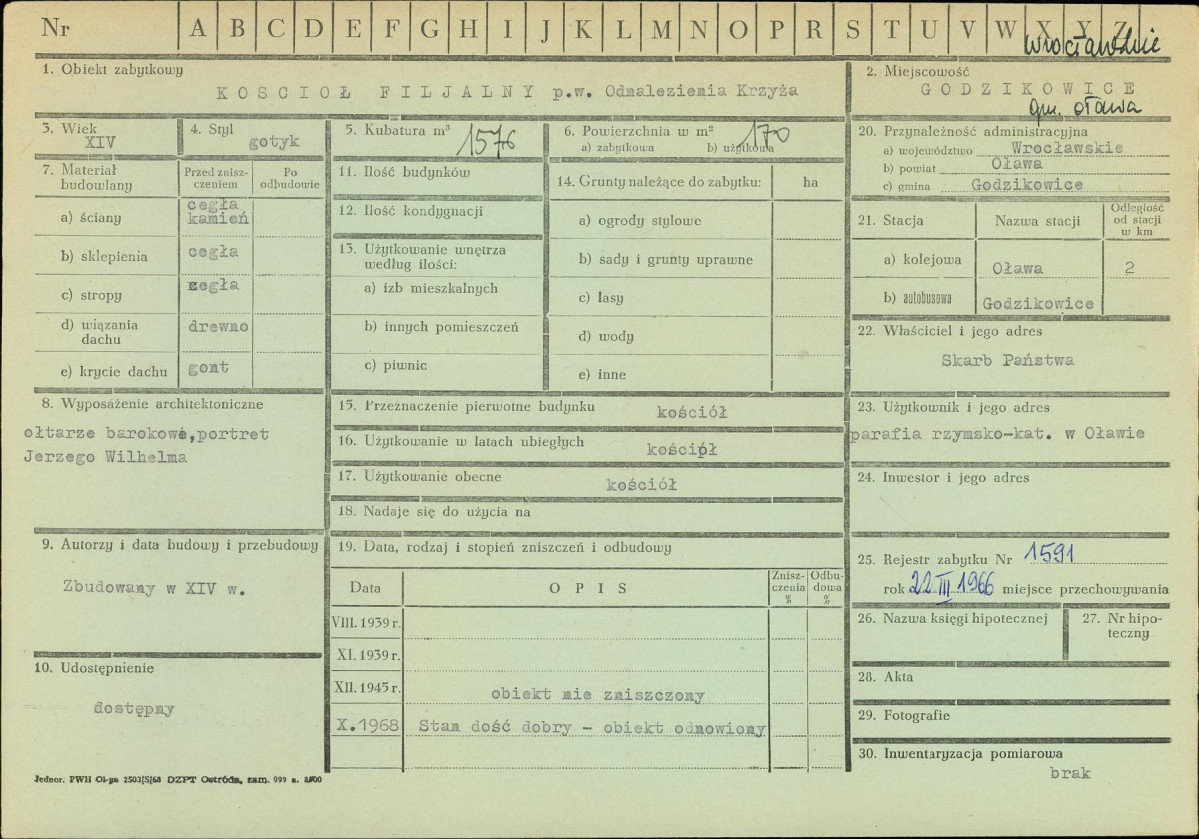 Nr A B C D E F G H I J K L M N O P R S T U V W X Y Z
wrocławskie
1. Obiekt zabytkowy
KOSCIOŁ FILJALNY p.w. Odnalezienia Krzyża
2. Miejscowość
GODZIKOWICE
gm. oława
3. Wiek
XIV
4. Styl
gotyk
5. Kubatura m³
1576
6. Powierzchnia w m²
170
a) zabytkowa b) użytkowa
7. Materiał budowlany
Przed zniszczeniem
Po odbudowie
a) ściany cegła kamień
b) sklepienia cegła
c) stropy cegła
d) wiązania dachu drewno
e) krycie dachu gont
8. Wyposażenie architektoniczne
ołtarze barokowe,portret
Jerzego Wilhelma
9. Autorzy i data budowy i przebudowy
Zbudowany w XIV w.
10. Udostępnienie
dostępny
11. Ilość budynków
12. Ilość kondygnacji
13. Użytkowanie wnętrza
według ilości:
a) izb mieszkalnych
b) innych pomieszczeń
c) piwnic
14. Grunty należące do zabytku: ha
a) ogrody stylowe
b) sady i grunty uprawne
c) lasy
d) wody
e) inne
15. Przeznaczenie pierwotne budynku kościół
16. Użytkowanie w latach ubiegłych kościół
17. Użytkowanie obecne kościół
18. Nadaje się do użycia na
19. Data, rodzaj i stopień zniszczeń i odbudowy
Data O P I S Zniszczenia % Odbudowa %
VIII. 1939 r.
XI. 1939 r.
XII. 1945 r. obiekt nie zniszczony
X.1968 Stan dość dobry - obiekt odnowiony
20. Przynależność administracyjna
a) województwo Wrocławskie
b) powiat Oława
c) gmina Godzikowice
21. Stacja Nazwa stacji Odległość od stacji w km
a) kolejowa Oława 2
b) autobusowa Godzikowice
22. Właściciel i jego adres
Skarb Państwa
23. Użytkownik i jego adres
parafia rzymsko-kat. w Oławie
24. Inwestor i jego adres
25. Rejestr zabytku Nr 1591
rok 22 III 1966 miejsce przechowywania
26. Nazwa księgi hipotecznej
27. Nr hipoteczny
28. Akta
29. Fotografie
30. Inwentaryzacja pomiarowa
brak
Jednor. PWH Ol-ga 2503[S]68 DZPT Ostróda, zam. 999 n.